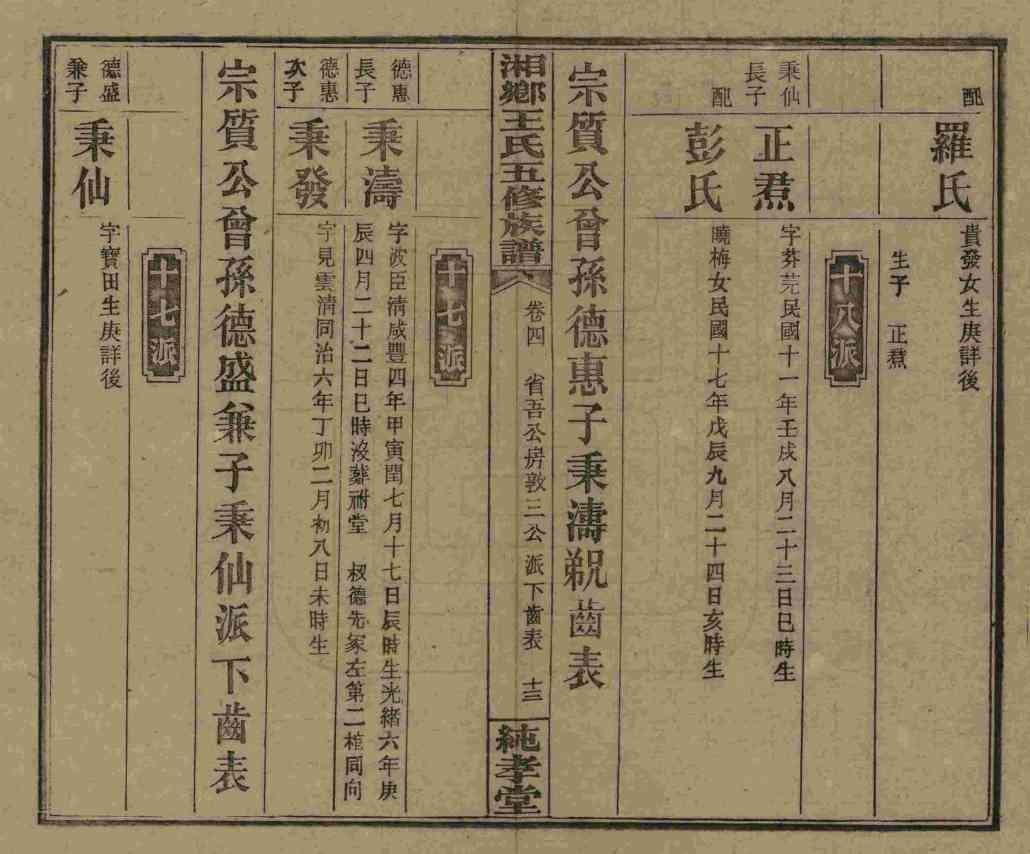 配
羅氏
貴發女生庚詳後
生子 正焄
十八派
秉仙
長子
正焄
字芬芫民國十一年壬戌八月二十三日巳時生
配
彭氏
曉梅女民國十七年戊辰九月二十四日亥時生
宗質公曾孫德惠子秉濤綐齒表
湘鄉王氏五修族譜
卷四 省吾公房敦三公派下齒表 十三
純孝堂
十七派
德惠
長子
秉濤
字波臣清咸豐四年甲寅閏七月十七日辰時生光緒六年庚
辰四月二十二日巳時歿葬祔堂 叔德先冢左第二棺同向
德惠
次子
秉發
字見雲清同治六年丁卯二月初八日未時生
宗質公曾孫德盛兼子秉仙派下齒表
十七派
德盛
兼子
秉仙
字寶田生庚詳後